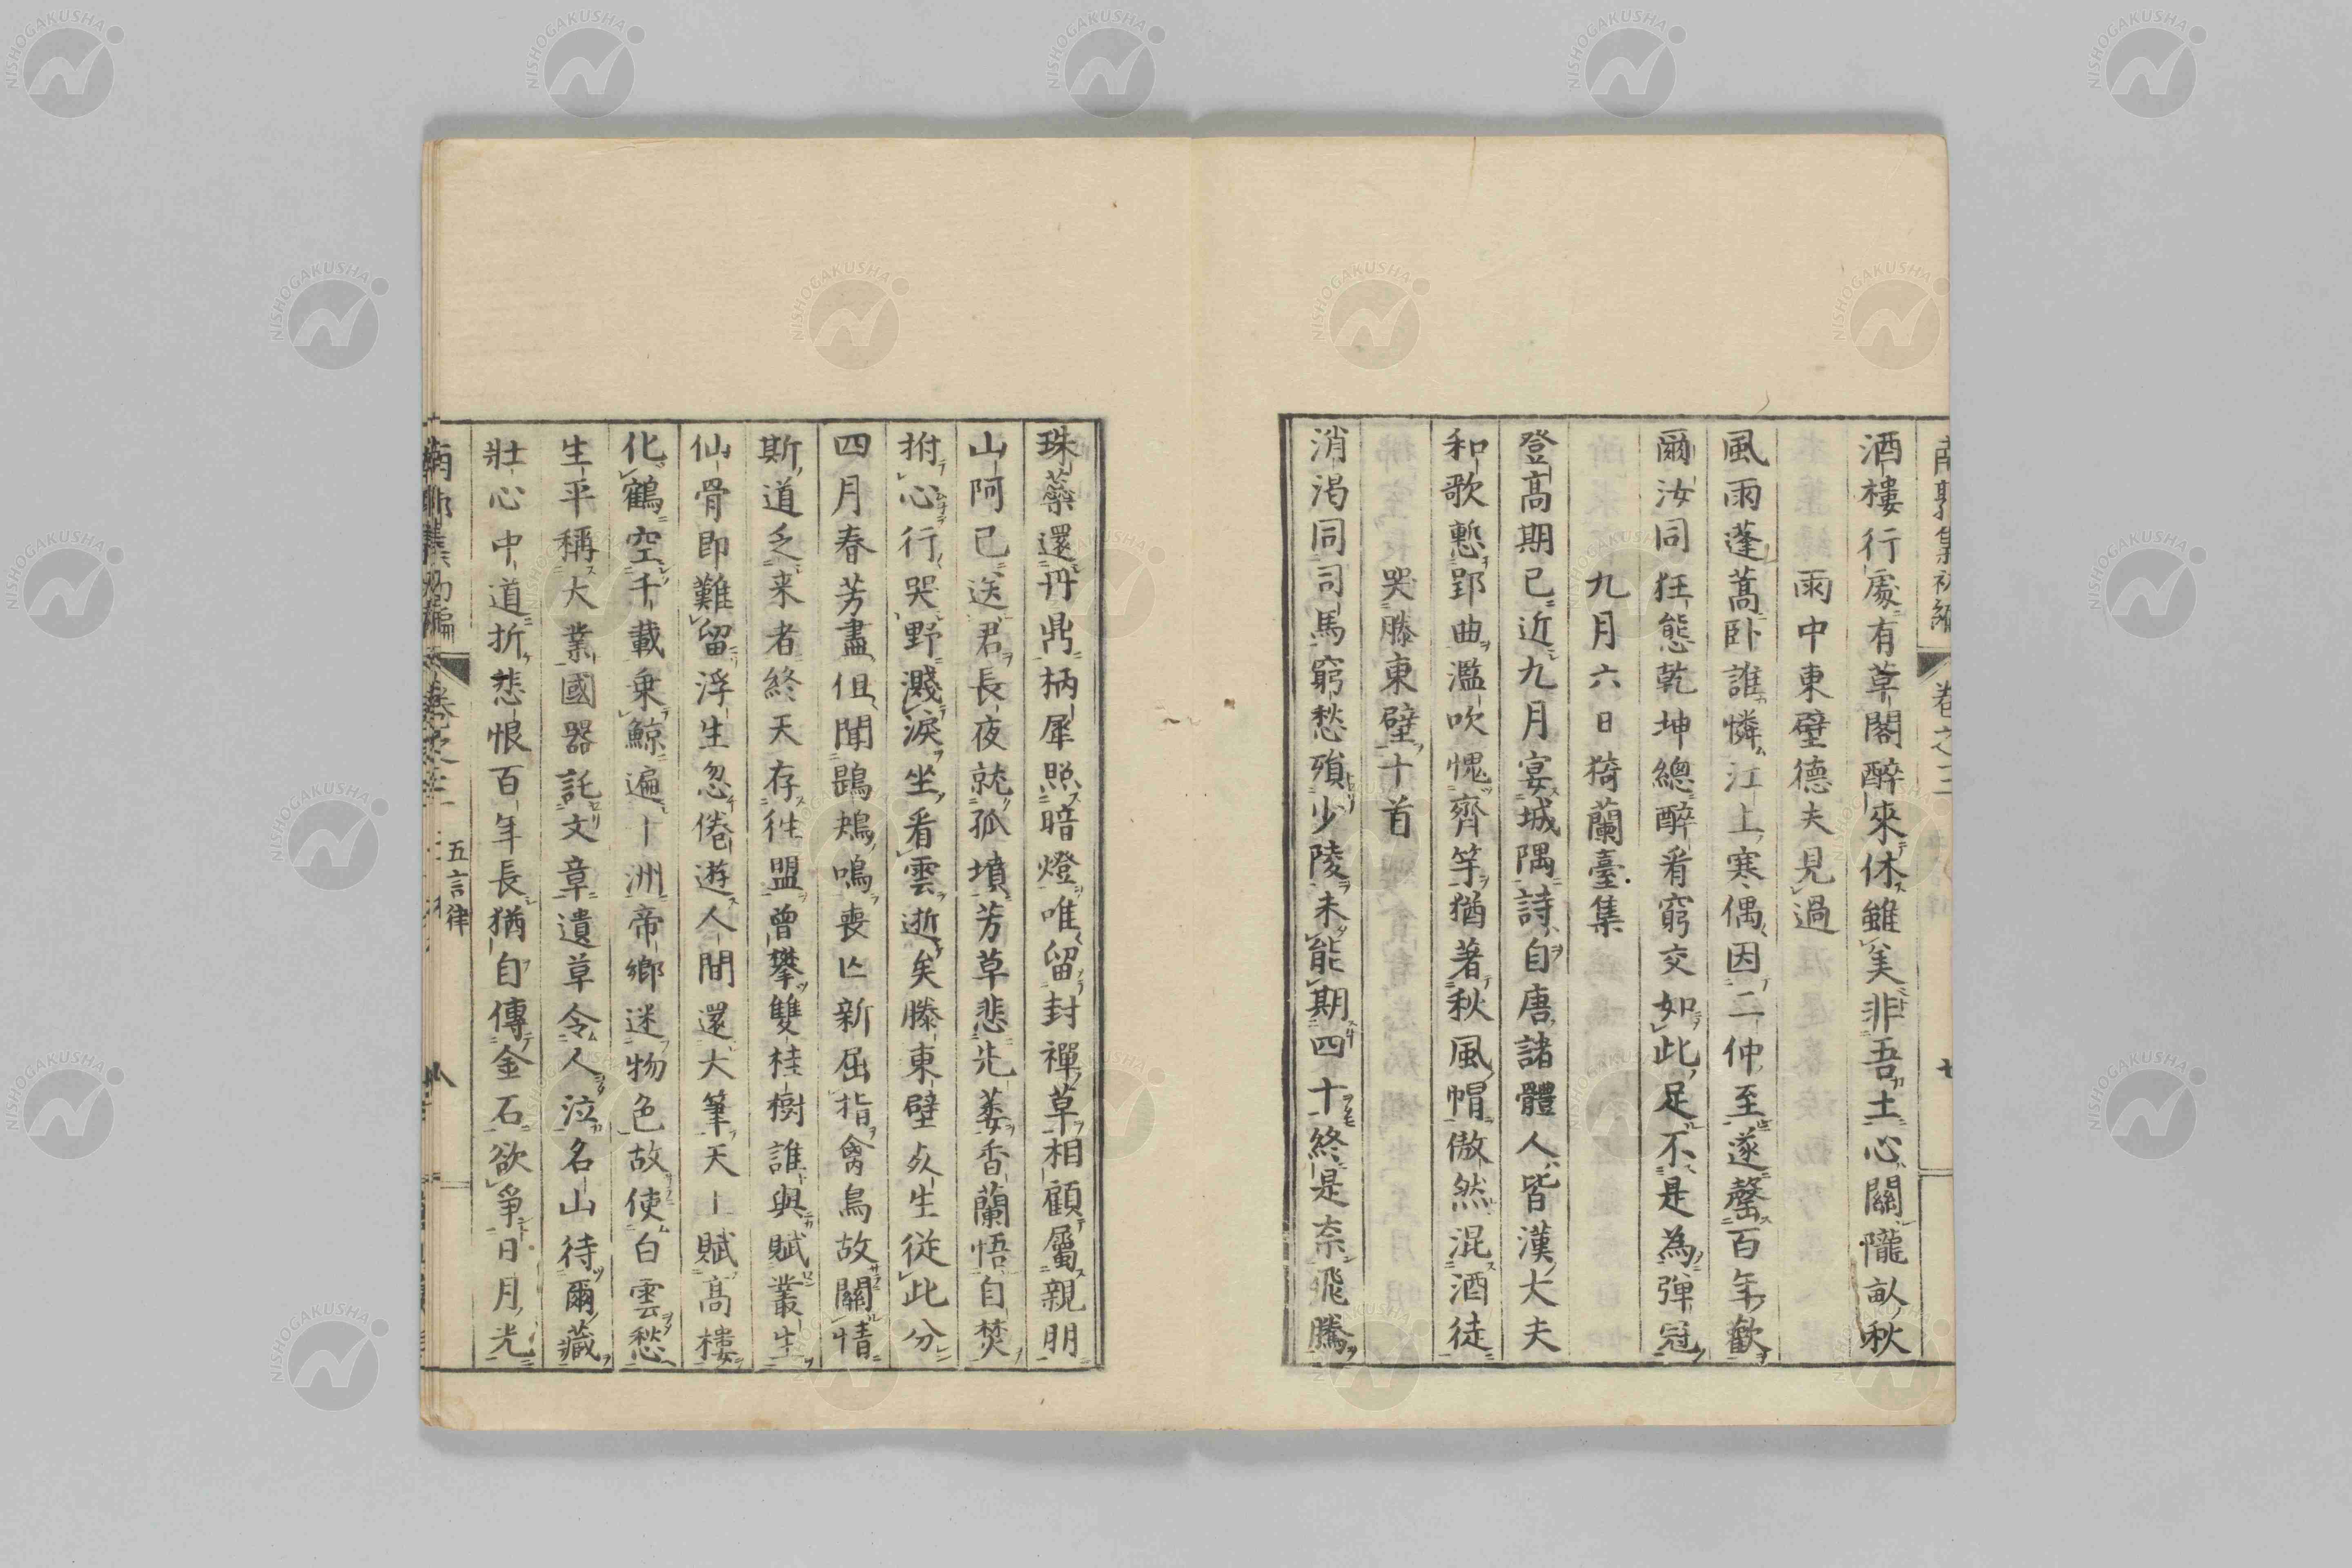 酒樓行處有草閣醉來休雖美非吾土心關隴畝秋
雨中東壁德夫見過
風雨蓬蒿臥誰憐江上寒偶因二仲至遂罄百年歡
爾汝同狂態乾坤總醉看窮交如此足不是為彈冠
九月六日猗蘭臺集
登高期已近九月宴城隅詩自唐諸體人皆漢大夫
和歌慙郢曲濫吹愧齊竽猶著秋風帽傲然混酒徒
哭滕東壁十首
消渴同司馬窮愁殞少陵未能期四十終是奈飛騰
珠藥還丹鼎柄犀照暗燈唯留封禪草相顧屬親朋
山阿已送君長夜就孤墳芳草悲先萎香蘭悟自焚
拊心行哭野濺淚坐看雲逝矣滕東壁死生従此分
四月春芳盡但聞鵾鴂鳴喪亡新屈指禽鳥故關情
斯道乏来者終天存徃盟曾攀雙桂樹誰與賦叢生
仙骨即難留浮生忽倦遊人間還大筆天上賦高樓
化鶴空千載乗鯨遍十洲帝郷迷物色故使白雲愁
生平稱大業國器託文章遺草令人泣名山待爾藏
壯心中道折悲恨百年長猶自傳金石欲爭日月光
南郭集初編
卷之三
五言律
八